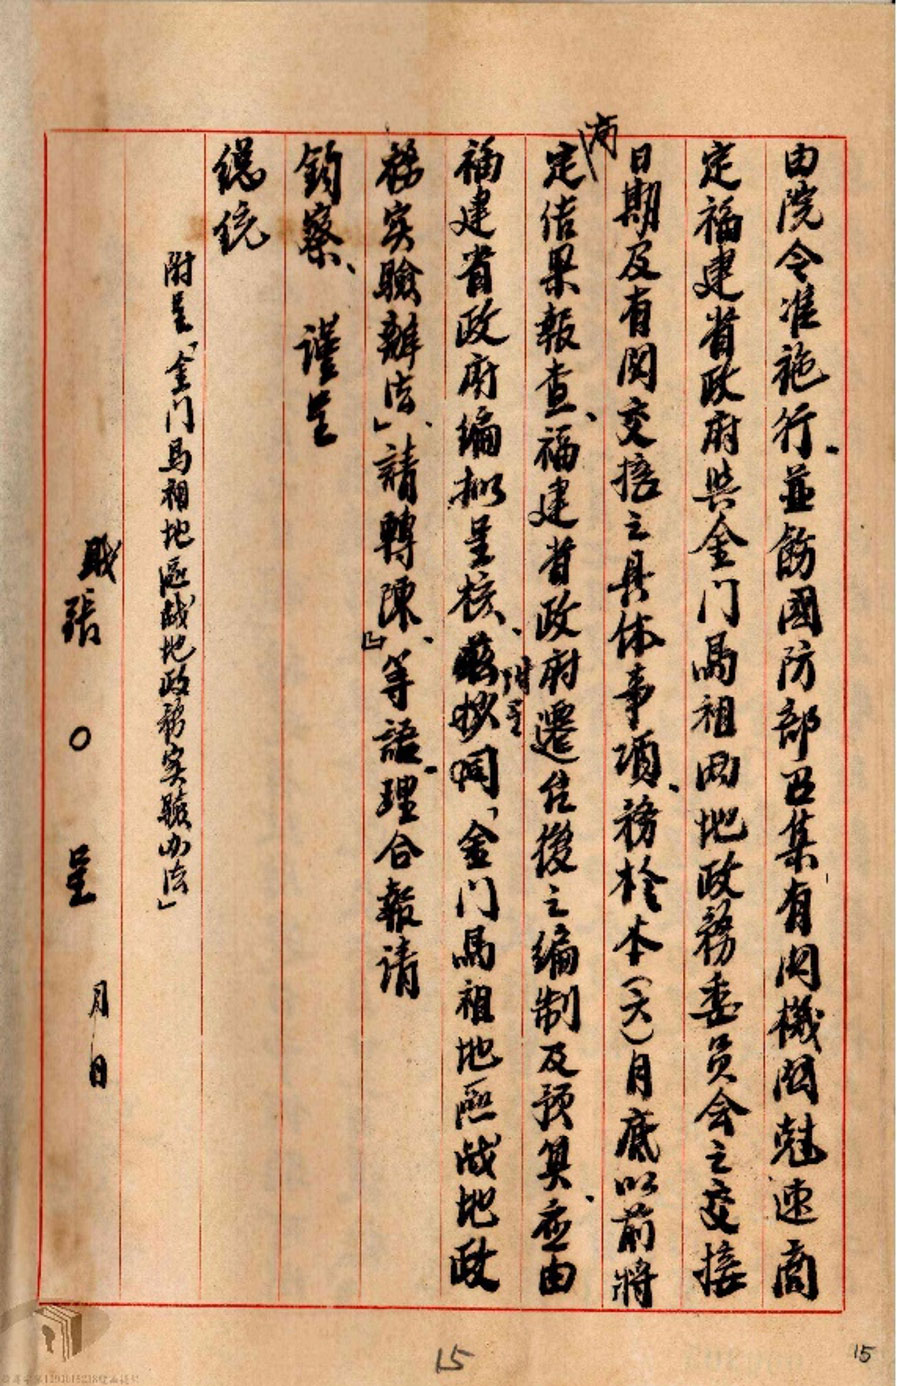 由院令准施行、並飭國防部召集有関機関尅速商
定福建省政府與金门馬祖两地政務委员会之交接
日期及有関交接之具体事項、務於本(六)月底以前將商
定结果報查、福建省政府遷台後之编制及预算、应由
福建省政府编拟呈核、附呈抄同「金门馬祖地區战地政
務实驗辦法」、請轉陳』、等語、理合報请
鈞察、謹呈
總统
附呈「金门馬祖地區战地政務实驗办法」
職張○呈
月 日
15
15